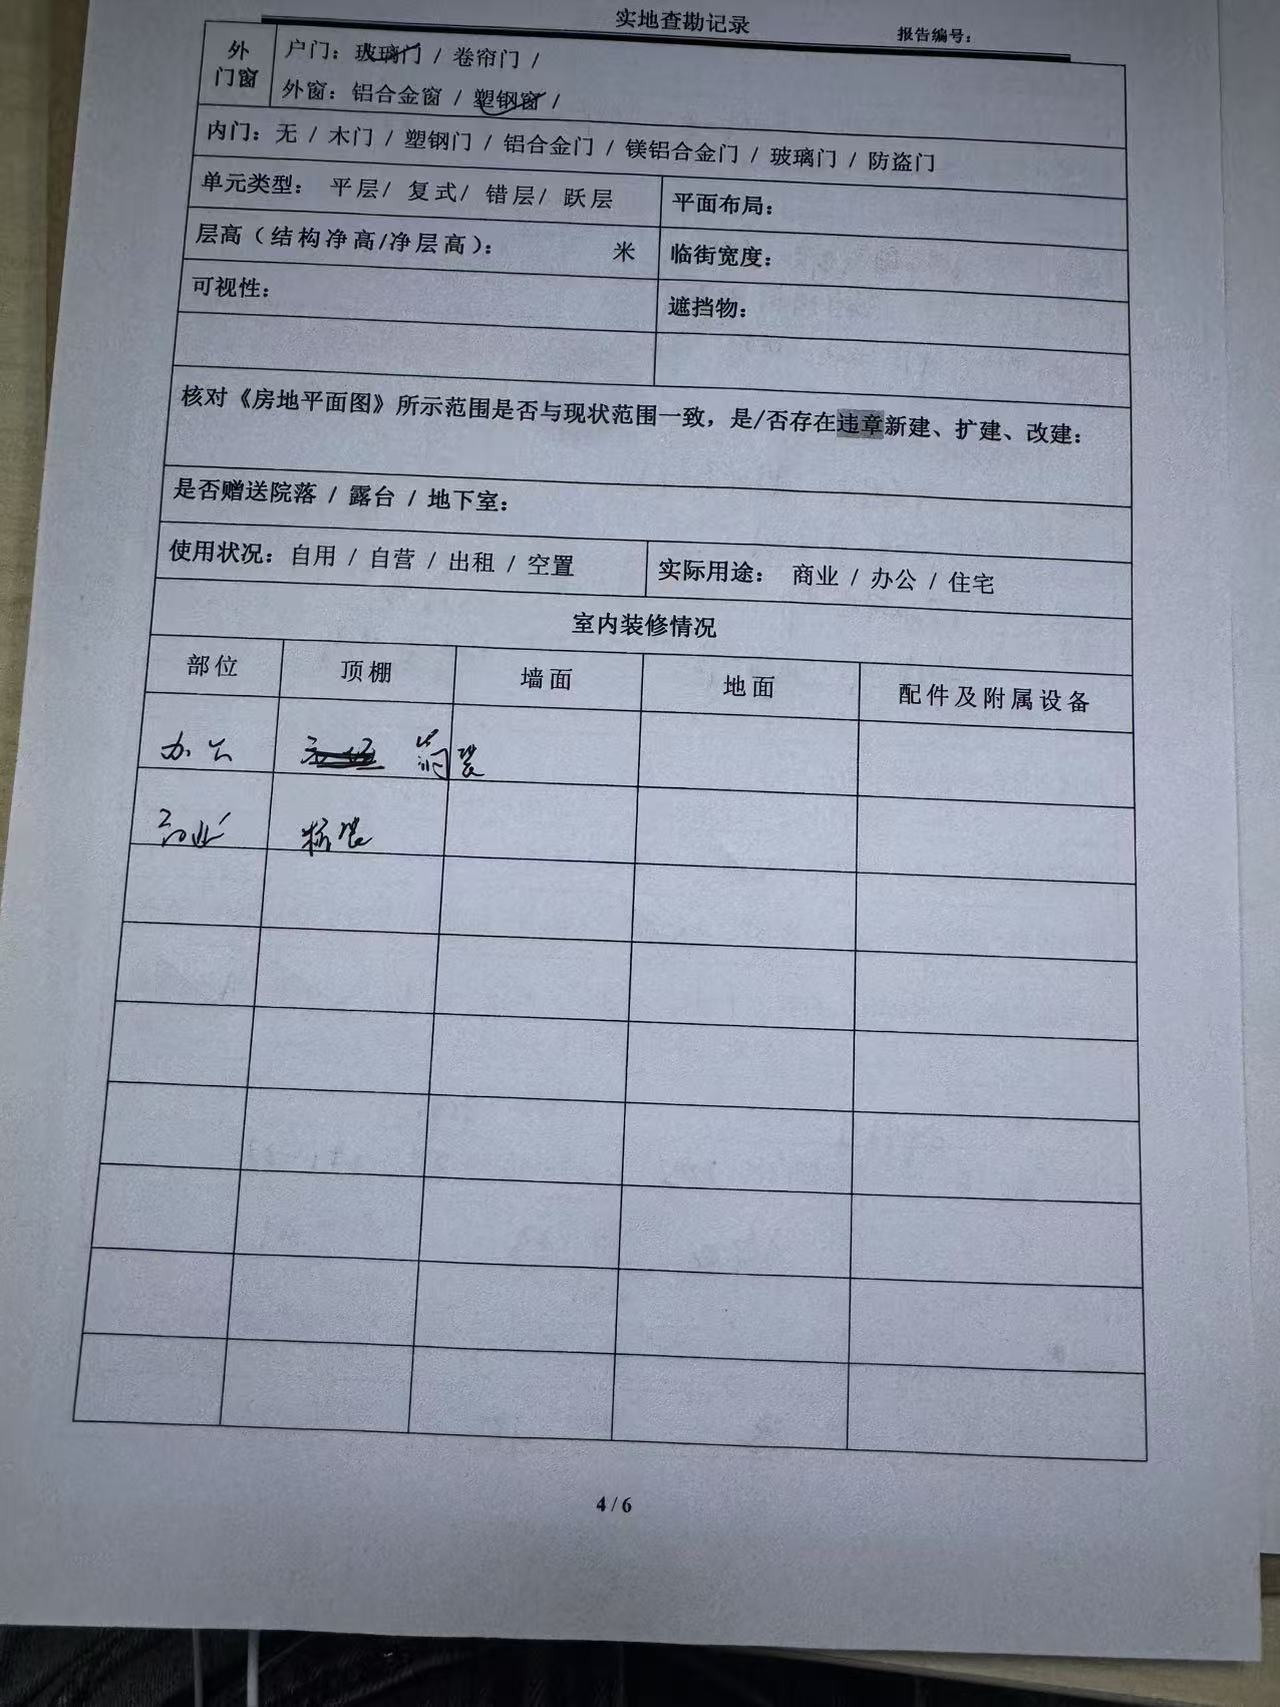 实地查勘记录
报告编号：
外门窗
户门：玻璃门 / 卷帘门 /
外窗：铝合金窗 / 塑钢窗 /
内门：无 / 木门 / 塑钢门 / 铝合金门 / 镁铝合金门 / 玻璃门 / 防盗门
单元类型： 平层/ 复式/ 错层/ 跃层
平面布局：
层高（结构净高/净层高）： 米
临街宽度：
可视性：
遮挡物：
核对《房地平面图》所示范围是否与现状范围一致，是/否存在违章新建、扩建、改建：
是否赠送院落 / 露台 / 地下室：
使用状况：自用 / 自营 / 出租 / 空置
实际用途： 商业 / 办公 / 住宅
室内装修情况
部位 顶棚 墙面 地面 配件及附属设备
办公 简装
商业 精装
4 / 6